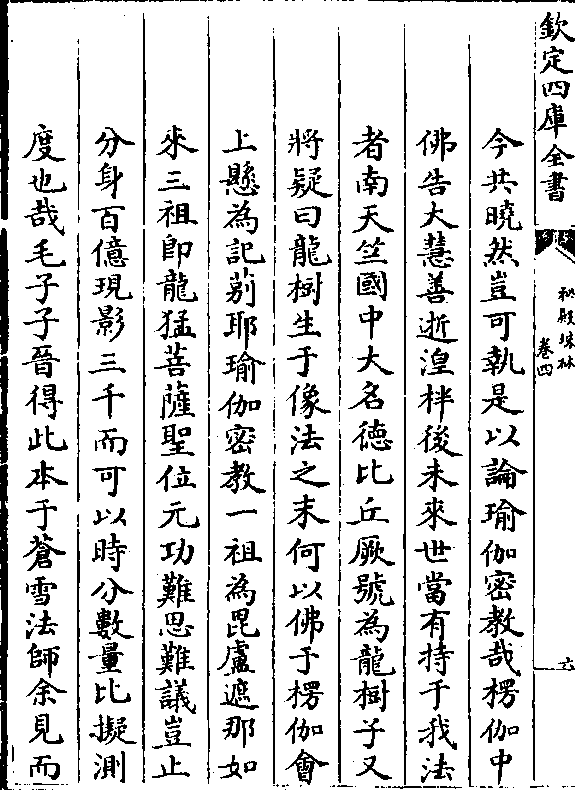 欽定四庫全書
秘殿珠林
卷四
六
今共曉然豈可執是以論瑜伽密教哉楞伽中
佛告大慧善逝湼柈後未來世當有持于我法
者南天竺國中大名德比丘厥號為龍樹子又
將疑曰龍樹生于像法之末何以佛于楞伽會
上懸為記莂耶瑜伽密教一祖為毘盧遮那如
來三祖即龍猛菩薩聖位元功難思難議豈止
分身百億現影三千而可以時分數量比擬測
度也哉毛子子晉得此本于蒼雪法師余見而